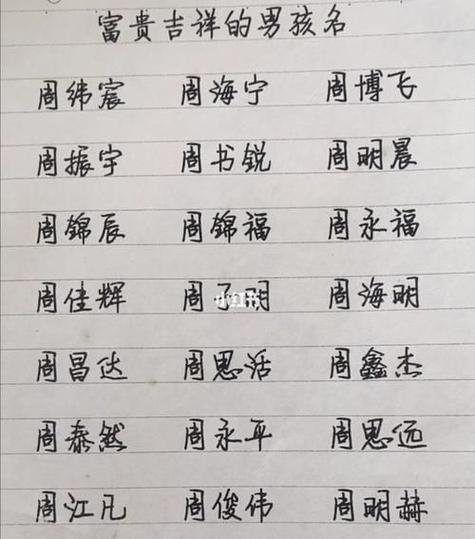 富贵吉祥的男孩名
周纬宸 周海宁 周博飞
周振宇 周书锐 周明晨
周锦辰 周锦福 周永福
周佳辉 周子明 周海明
小红书
周昌达 周思活 周鑫杰
周泰然 周永平 周思远
周江凡 周俊伟 周明赫